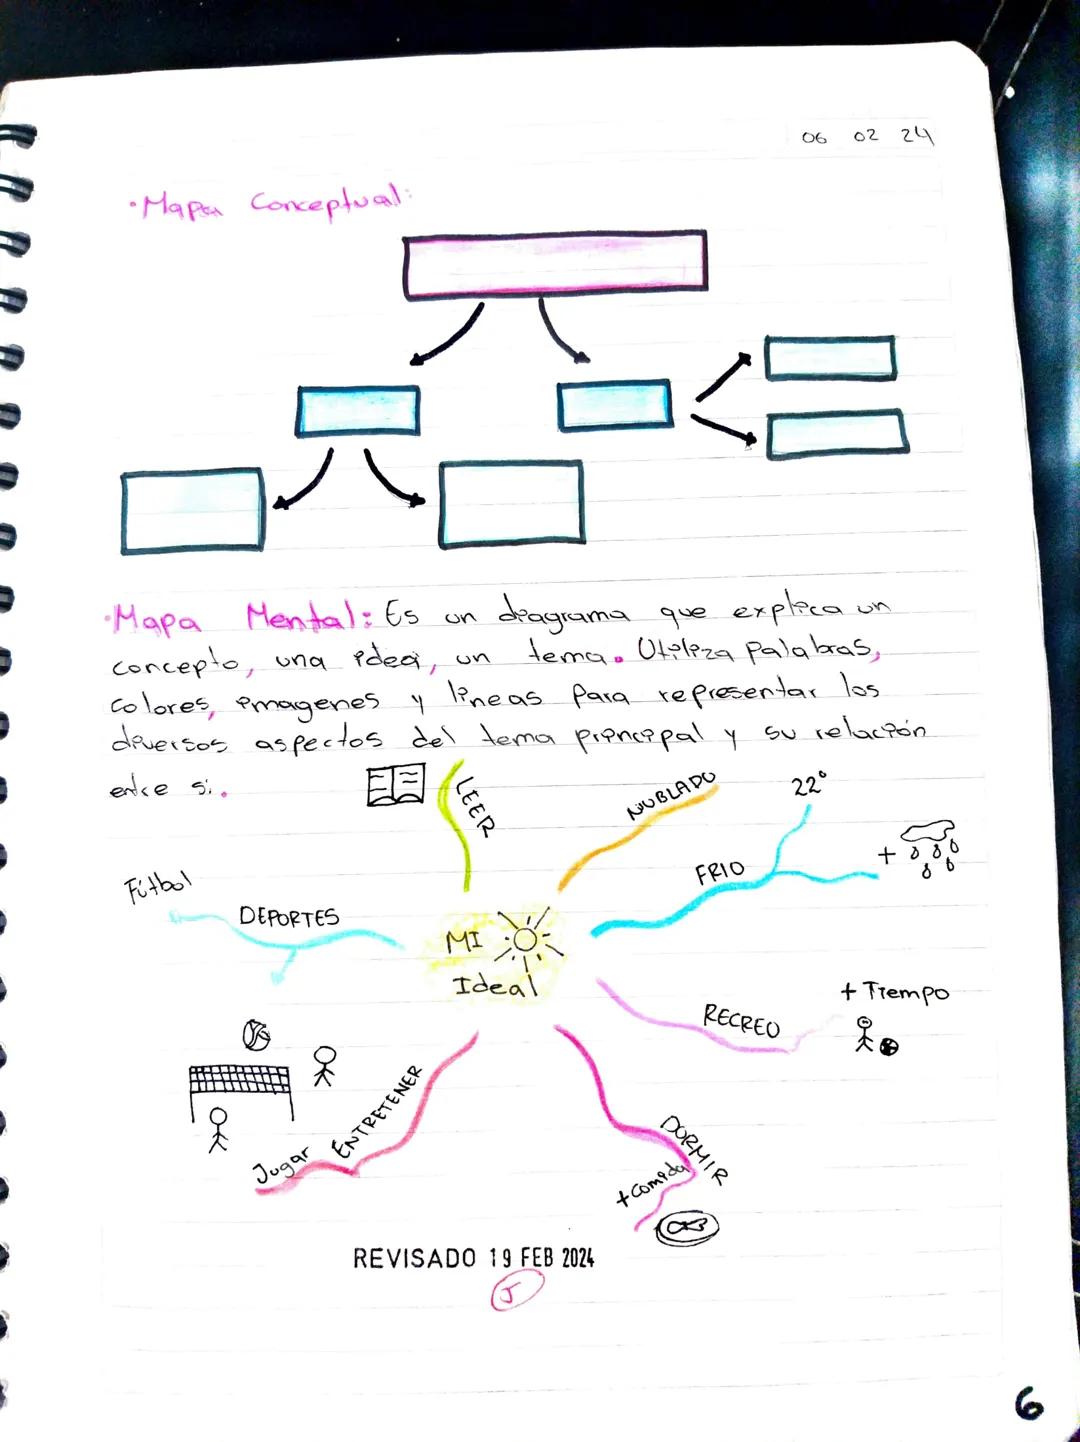 06 02 24
•Mapa Conceptual:
•Mapa Mental: Es un diagrama que explica un
concepto, una idea, un tema. Utiliza palabras,
colores, imagenes y lineas para representar los
diversos aspectos del tema principal y su relación
entre si.
LEER
NUBLADO
22°
FRIO
+
Fútbol
DEPORTES
MI
Ideal
RECREO
+ Tiempo
ENTRETENER
Jugar
DORMIR
+comida
REVISADO 19 FEB 2024
J
6